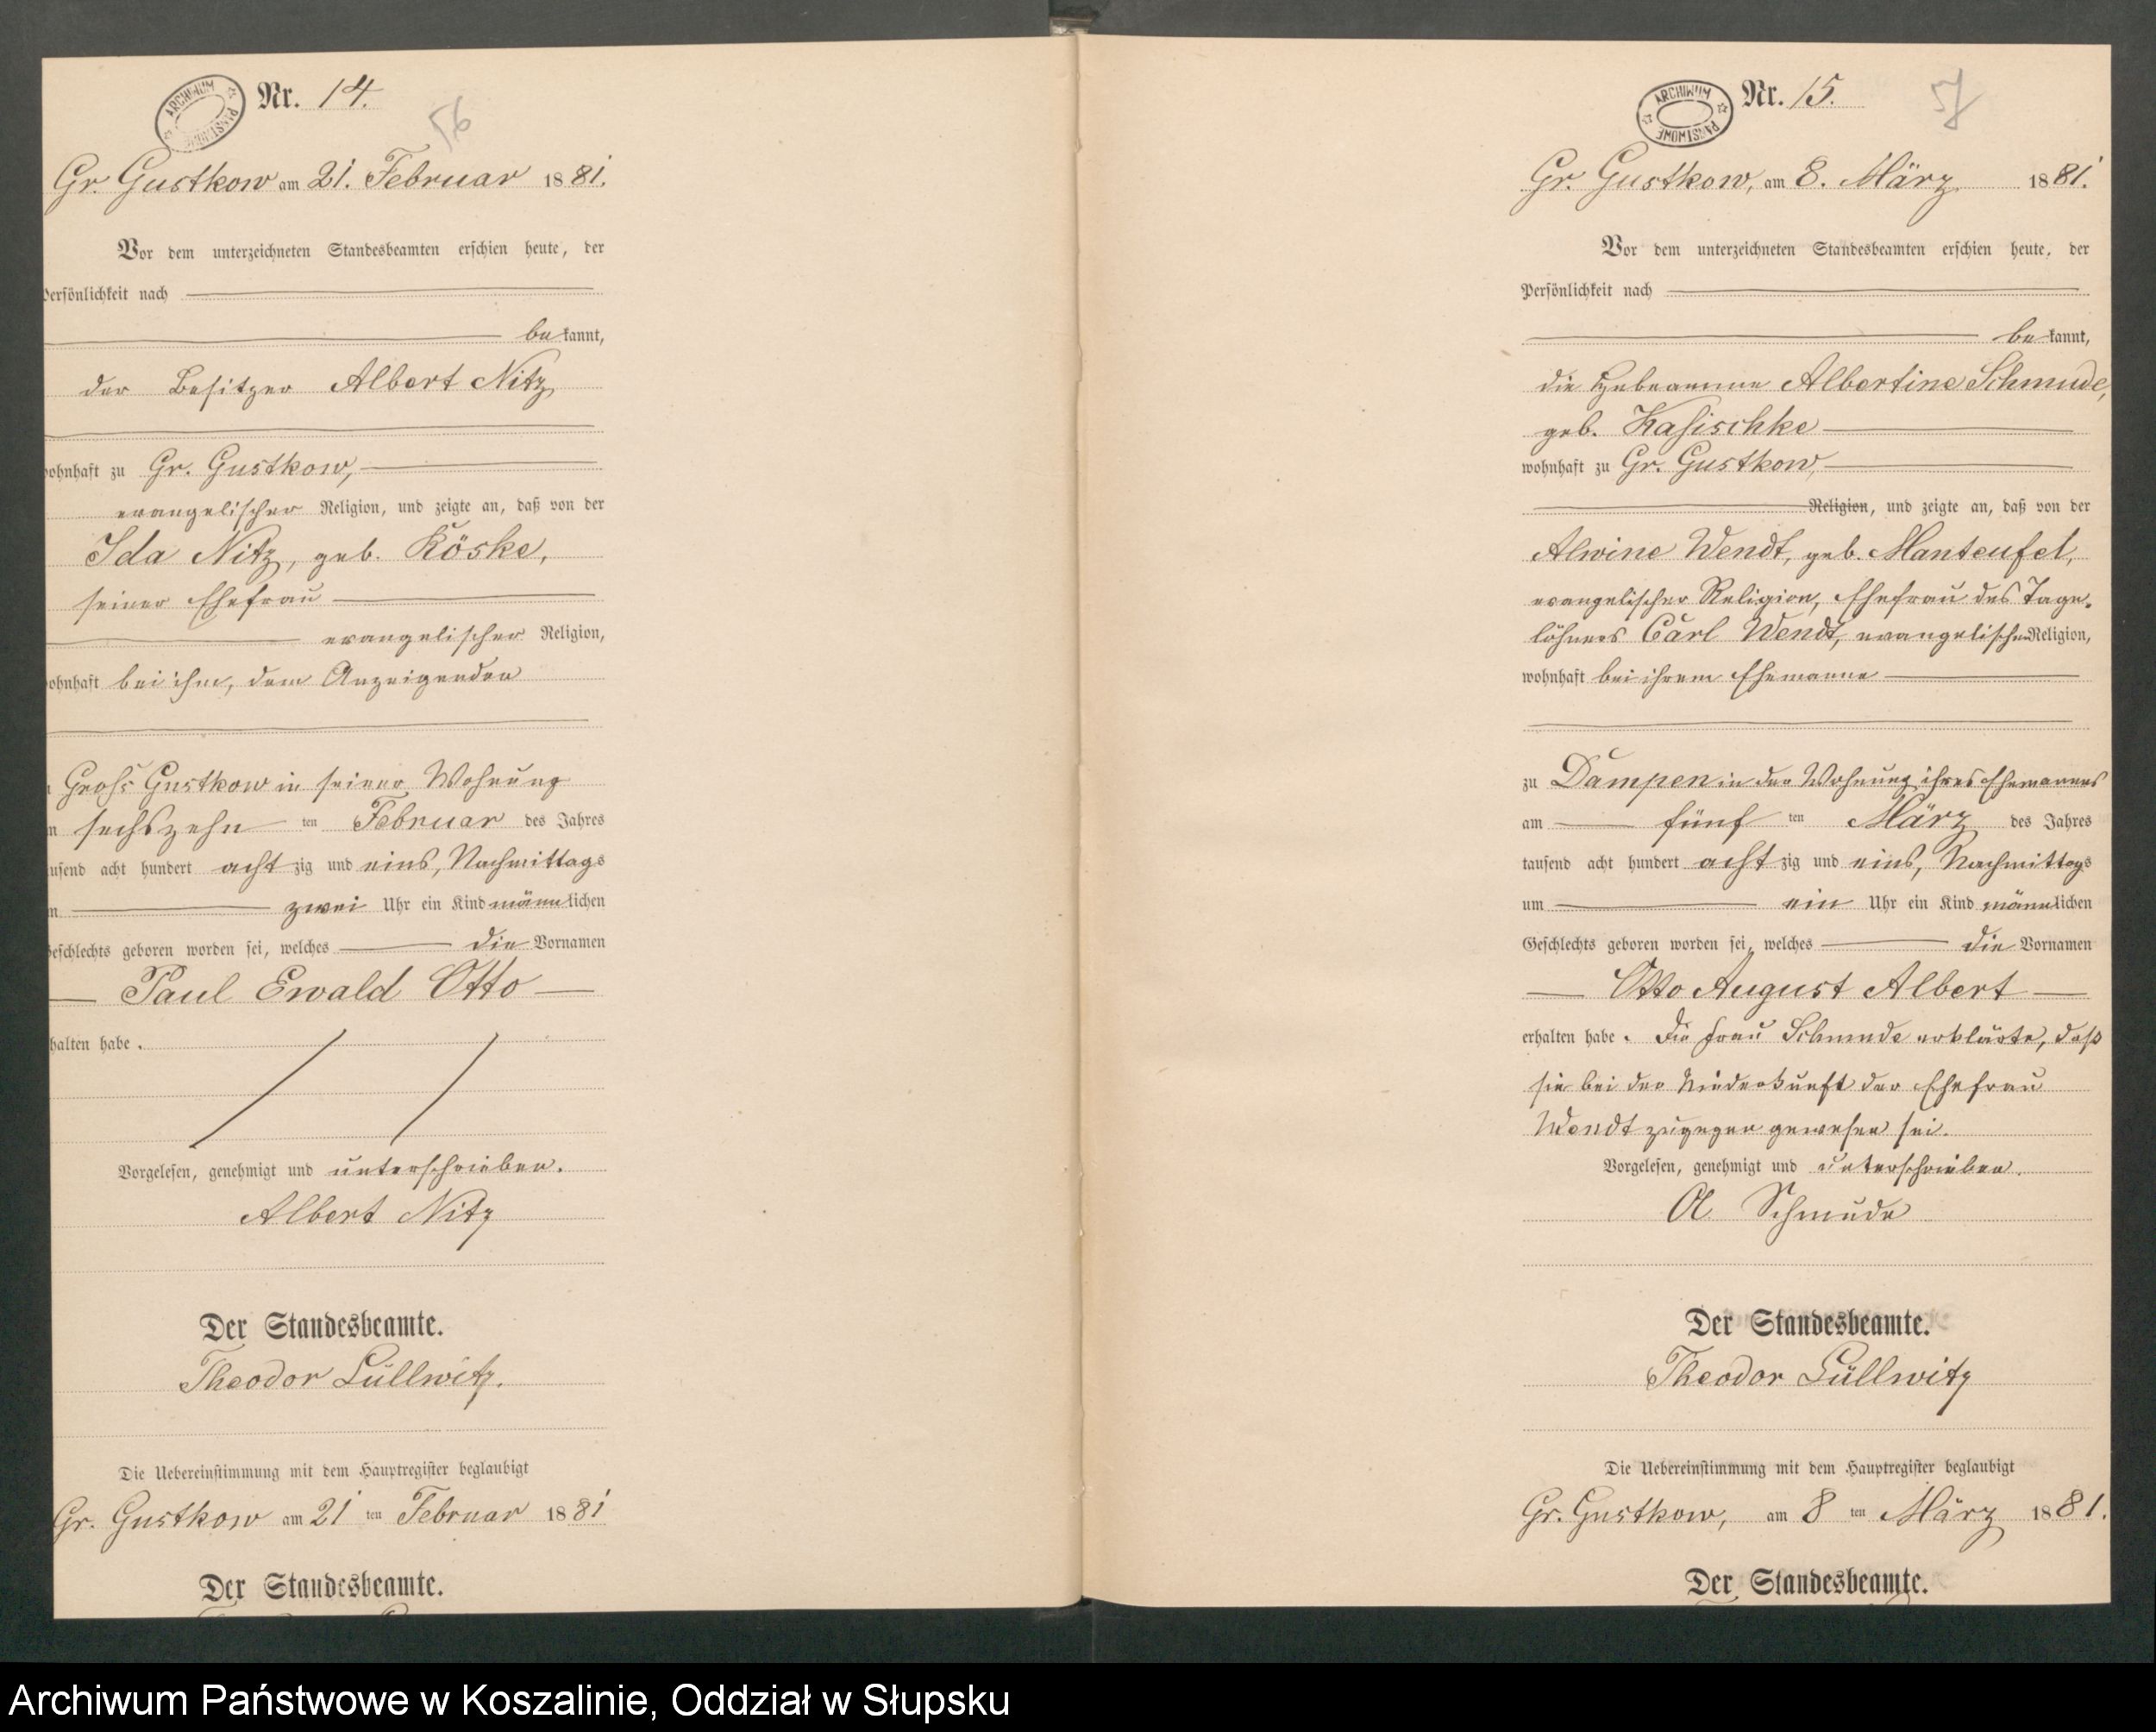 ARCHIWUM PAŃSTWOWE
Nr. 14.
56
Gr. Gustkow am 21. Februar 1881.
Vor dem unterzeichneten Standesbeamten erschien heute, der
Persönlichkeit nach
bekannt,
der Besitzer Albert Nitz
wohnhaft zu Gr. Gustkow,
evangelischer Religion, und zeigte an, daß von der
Ida Nitz, geb. Köske,
seiner Ehefrau
evangelischer Religion,
wohnhaft bei ihm, dem Anzeigenden
Groß Gustkow in seiner Wohnung
sechszehn ten Februar des Jahres
tausend acht hundert achtzig und eins, Nachmittags
zwei Uhr ein Kind männlichen
Geschlechts geboren worden sei, welches die Vornamen
Paul Ewald Otto
erhalten habe.
Vorgelesen, genehmigt und unterschrieben.
Albert Nitz
Der Standesbeamte.
Theodor Lüllwitz.
Die Uebereinstimmung mit dem Hauptregister beglaubigt
Gr. Gustkow am 21 ten Februar 1881
Der Standesbeamte.
ARCHIWUM PAŃSTWOWE
Nr. 15.
57
Gr. Gustkow, am 8. März 1881.
Vor dem unterzeichneten Standesbeamten erschien heute, der
Persönlichkeit nach
bekannt,
die Hebeamme Albertine Schmude,
geb. Kasischke
wohnhaft zu Gr. Gustkow,
Religion, und zeigte an, daß von der
Alwine Wendt, geb. Manteufel,
evangelischer Religion, Ehefrau des Tage-
löhners Carl Wendt, evangelischer Religion,
wohnhaft bei ihrem Ehemanne
zu Dampen in der Wohnung ihres Ehemannes
am fünf ten März des Jahres
tausend acht hundert achtzig und eins, Nachmittags
um ein Uhr ein Kind männlichen
Geschlechts geboren worden sei, welches die Vornamen
Otto August Albert
erhalten habe. Die Frau Schmude erklärte, daß
sie bei der Niederkunft der Ehefrau
Wendt zugegen gewesen sei.
Vorgelesen, genehmigt und unterschrieben.
A. Schmude
Der Standesbeamte.
Theodor Lüllwitz
Die Uebereinstimmung mit dem Hauptregister beglaubigt
Gr. Gustkow, am 8 ten März 1881.
Der Standesbeamte.
Archiwum Państwowe w Koszalinie, Oddział w Słupsku